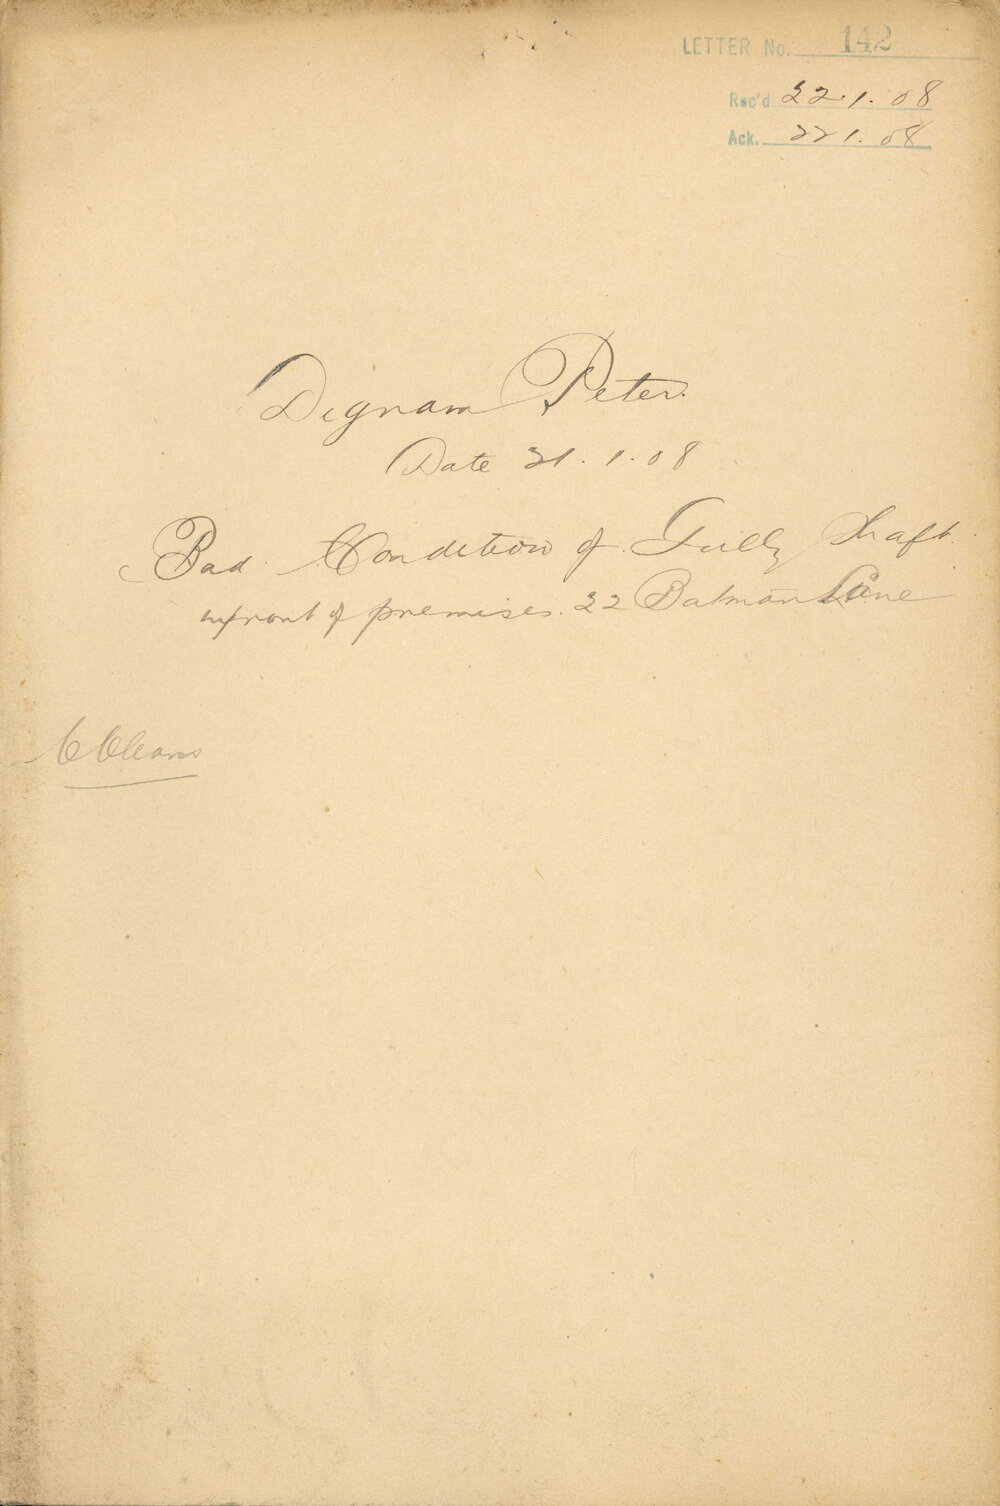 LETTER No. 142
Rec'd 22.1.08
Ack. 22 1.08
Dignam Peter.
Date 21.1.08
Bad Condition of Gully Shaft
infront of premises. 22 Batman Lane